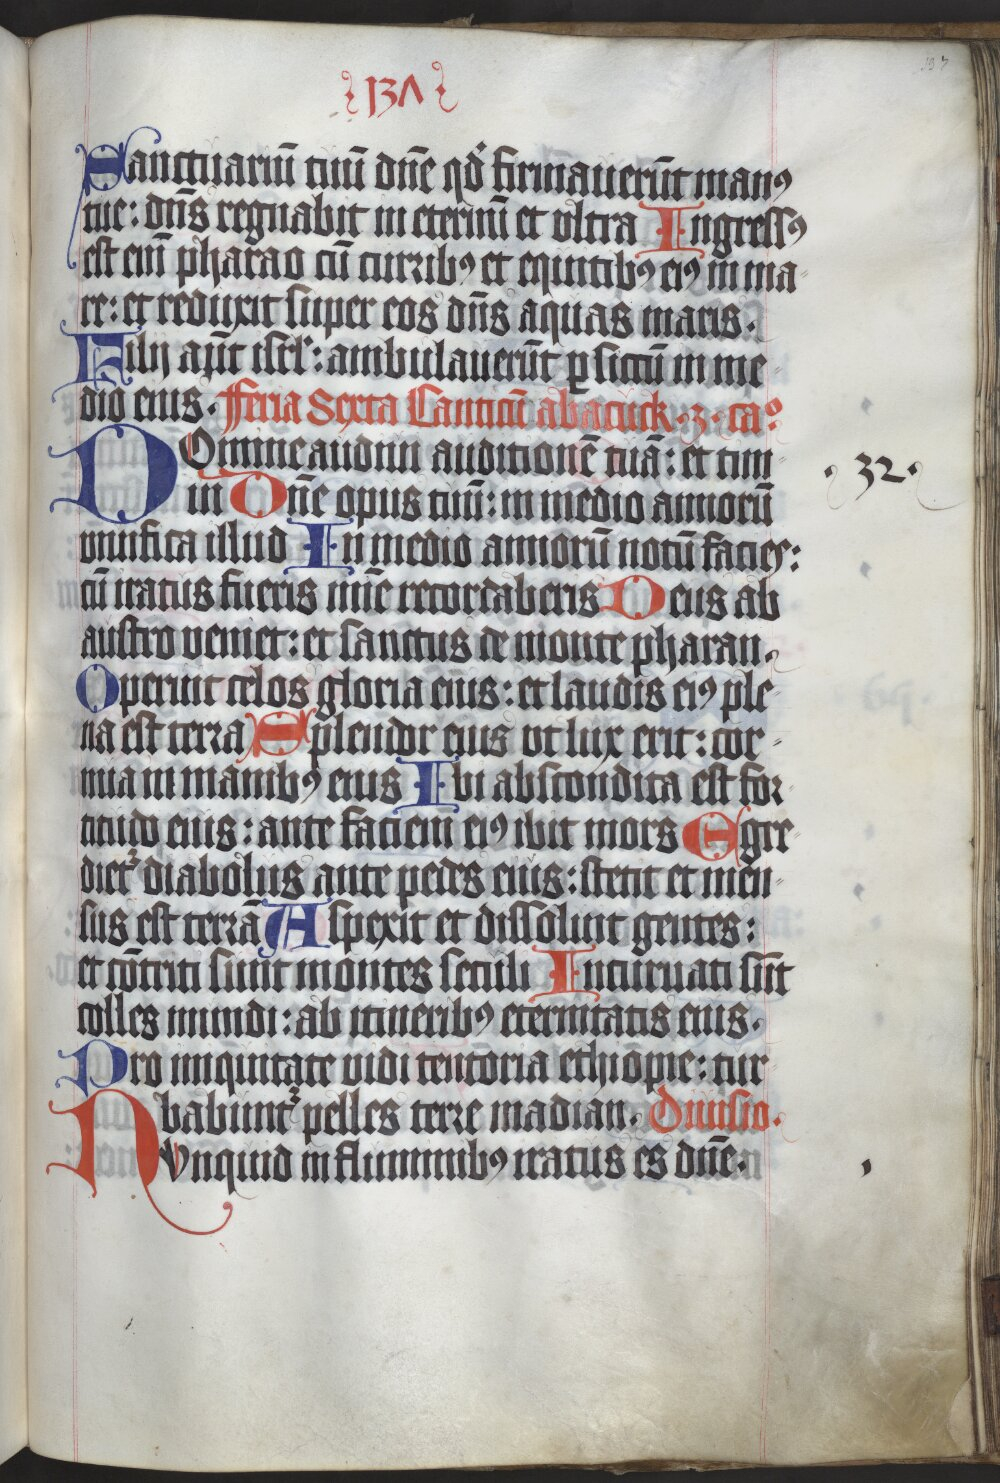 137
197
Sanctuariū tuū dn̄e qd̓ firmauerūt manꝰ
tue: dn̄s regnabit in eternū et vltra Ingressꝰ
est enī pharao cū curribꝰ et equitibꝰ eiꝰ in ma-
re: et reduxit super eos dn̄s aquas maris.
Filij aūt isrl̓: ambulauerūt ꝑ siccū in me-
dio eius. Feria Sexta Canticū abacuck .3. caº
DOmine audiui auditionē tuā: et timu-
ui Dn̄e opus tuū: in medio annorū
viuifica illud In medio annorū notū facies:
cū iratus fueris mi̅e recordaberis Deus ab
austro veniet: et sanctus de monte pharan.
Operuit celos gloria eius: et laudis eiꝰ ple-
na est terra Splendor eius vt lux erit: cor-
nua in manibꝰ eius Ibi abscondita est for-
titudo eius: ante faciem eiꝰ ibit mors Egre-
diet᷑ diabolus ante pedes eius: stetit et men-
sus est terrā Aspexit et dissoluit gentes:
et cōtriti sunt montes seculi Incuruati sūt
colles mundi: ab itineribꝰ eternitatis eius.
Pro iniquitate vidi tentoria ethiopie: tur-
babunt᷑ pelles terre madian. Diuisio.
NVnquid in fluminibꝰ iratus es dn̄e.
.32.